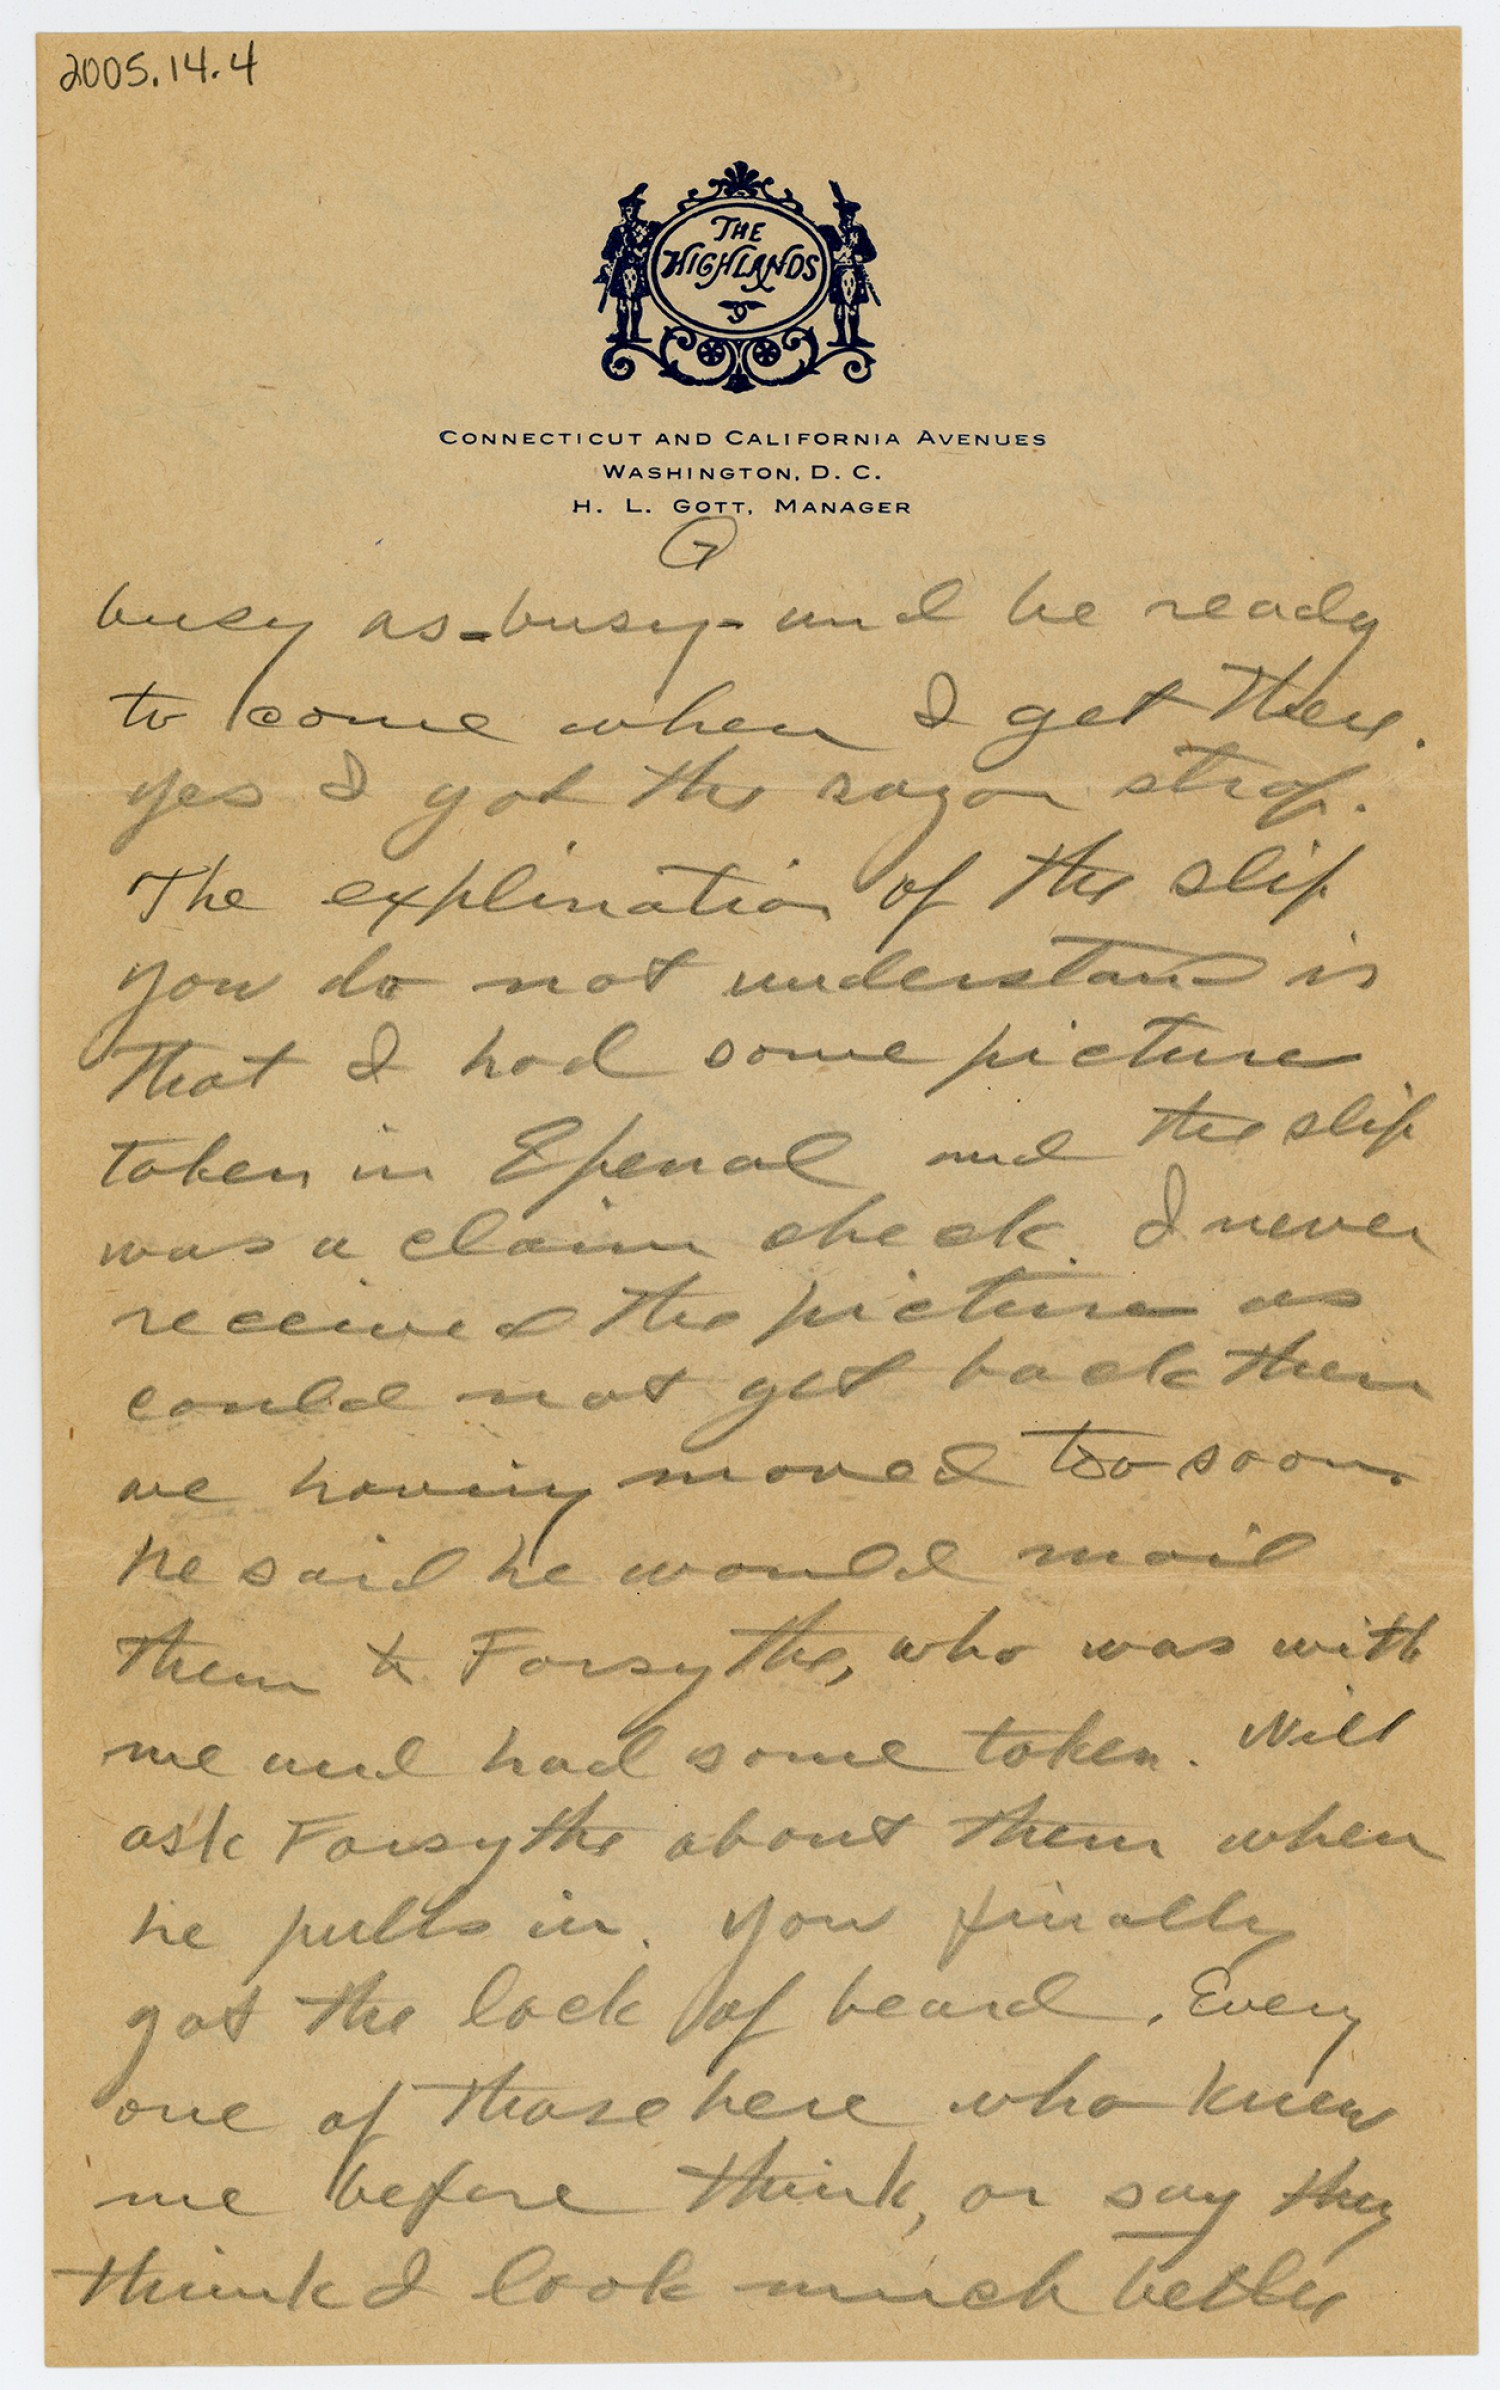 2005.14.4
THE
HIGHLANDS
CONNECTICUT AND CALIFORNIA AVENUES
WASHINGTON, D. C.
H. L. GOTT, MANAGER
7
busy as-busy- and be ready
to come when I get there.
yes I got the razor strop.
The explination of the slip
you do not understand is
that I had some picture
taken in Epenal and the slip
was a claim check. I never
received the picture as
could not get back then
we having moved too soon.
he said he would mail
them to Forsythe, who was with
me and had some taken. Will
ask Forsythe about them when
he pulls in. you finally
got the lock of beard. Every
one of those here who knew
me before think, or say they
think I look much better